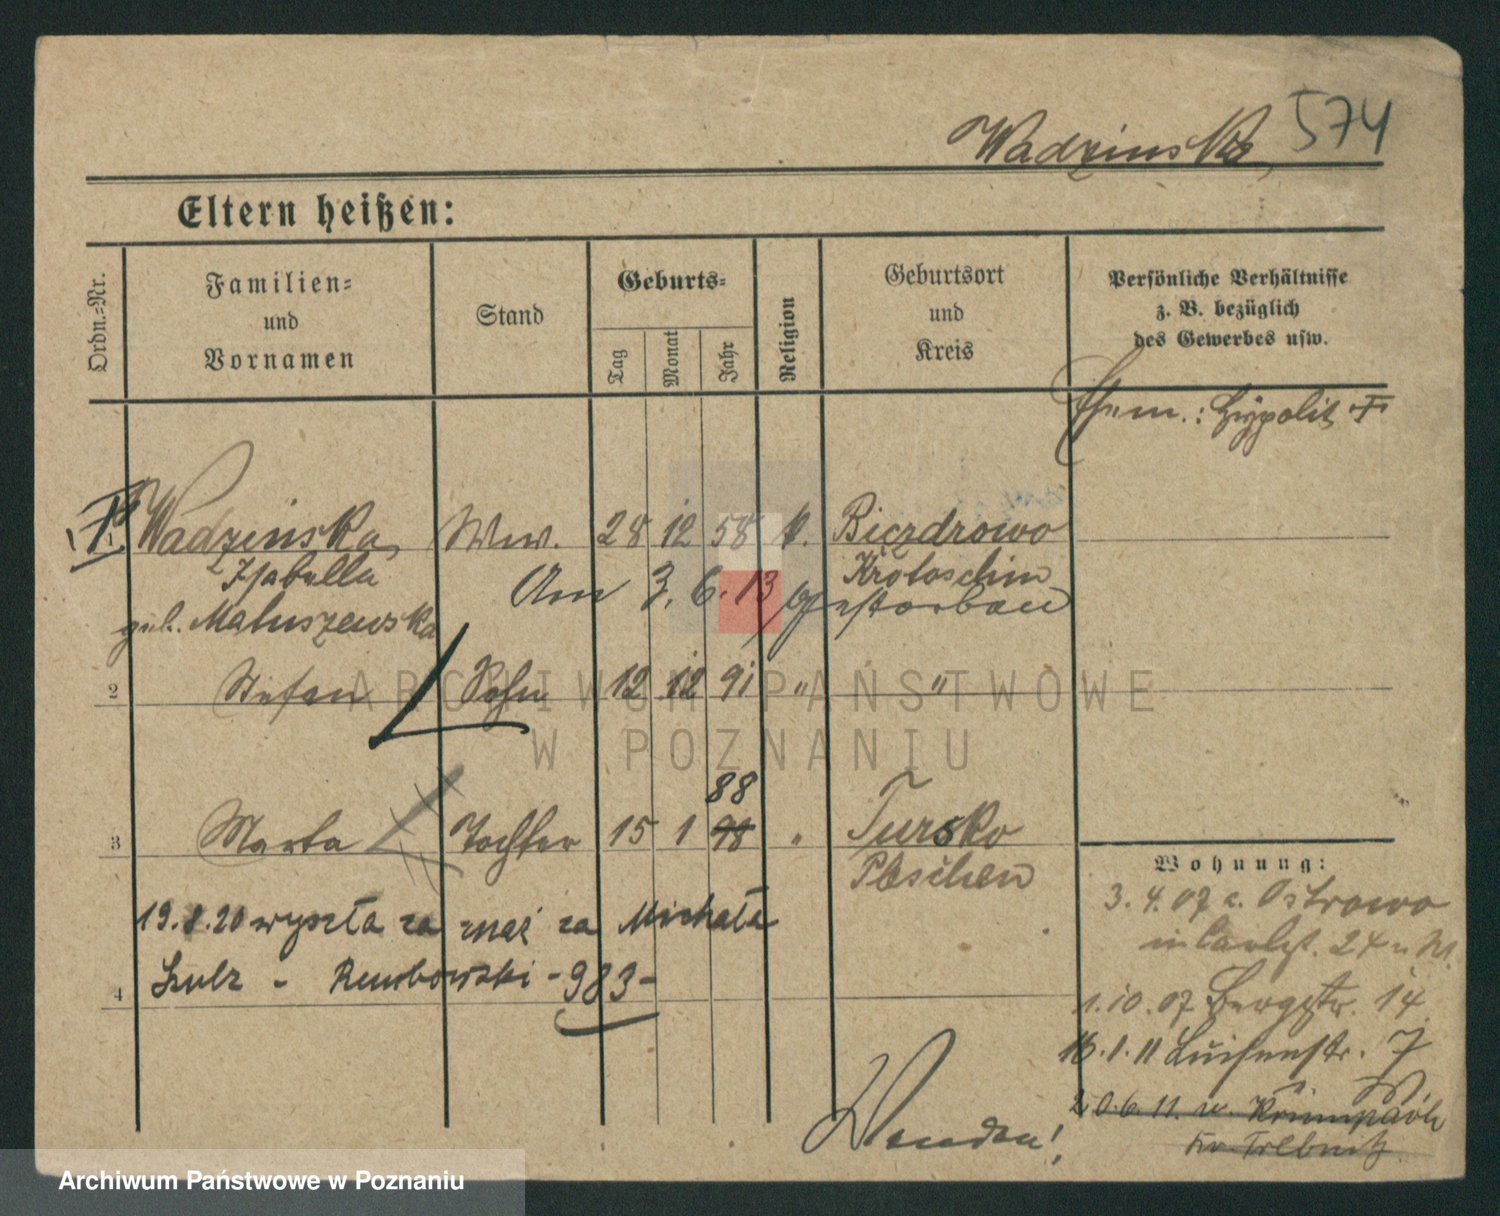 Wadzinska, 574
Eltern heißen:
Ordn.-Nr.
Familien-
und
Vornamen
Stand
Geburts-
Tag
Monat
Jahr
Religion
Geburtsort
und
Kreis
Persönliche Verhältnisse
z. B. bezüglich
des Gewerbes usw.
Ehem.: Hypolit
1 Wadzinska, Ww. 28 12 58 k. Biezdrowo
Isabella Krotoschin
Am 3. 6. 13 gestorben
geb. Matuszewska
2 Stefan Sohn 12 12 91 " "
88
3 Marta Tochter 15 1 98 " Tursko
Pleschen
19.8.20 wyszła za mąż za Michała
4 Szulz - Rembowski - 983 -
Wohnung:
3. 4. 07 Ostrowo
24
1. 10. 07 Bergstr. 14
16. 1. 11 Luisenstr. 7
20. 6. 11.
Kr Trebnitz
Wenden!
ARCHIWUM PAŃSTWOWE
W POZNANIU
Archiwum Państwowe w Poznaniu